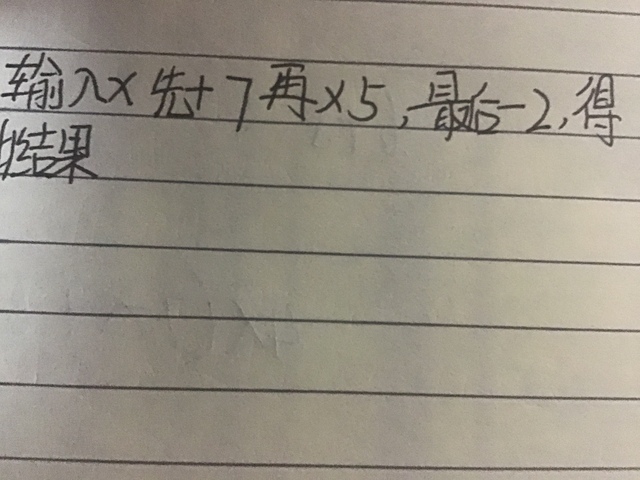 输入x先+7再×5,最后-2,得
出结果